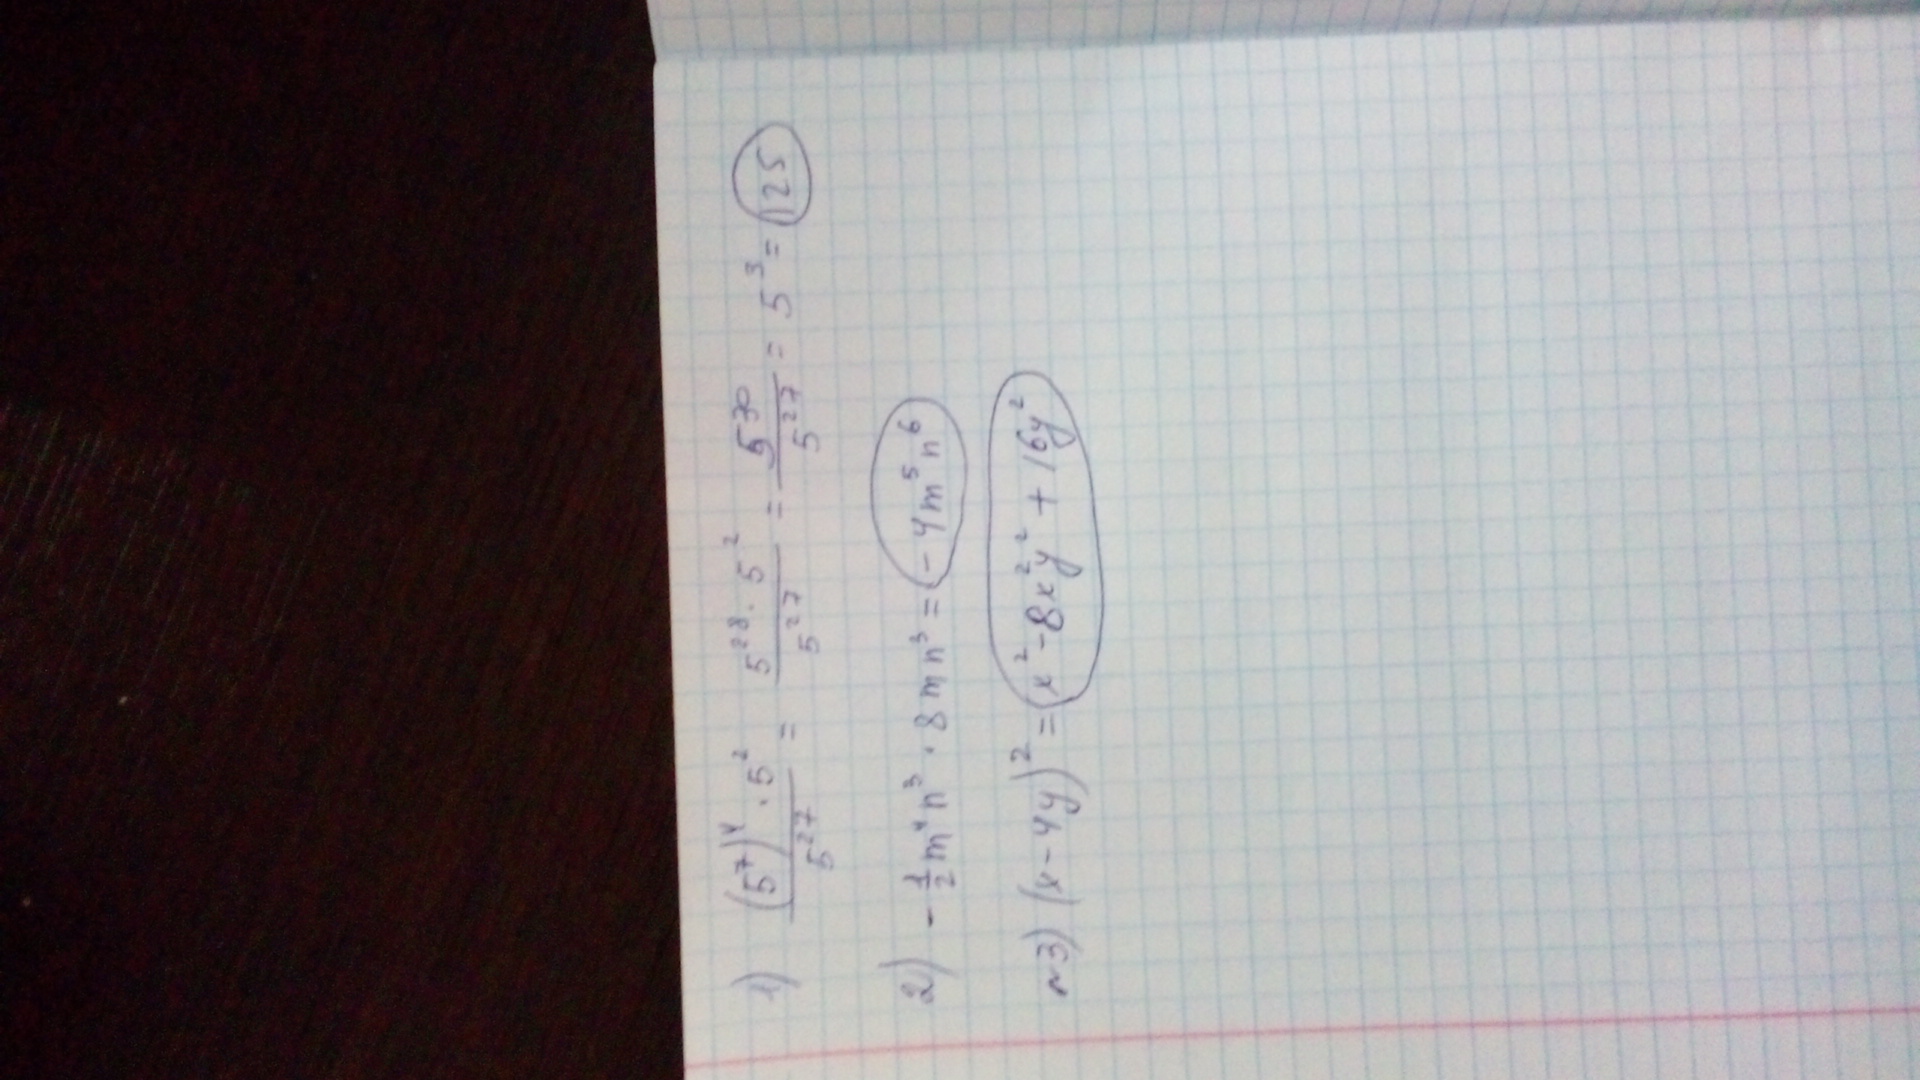 1) (5^7)^4 · 5^2 / 5^27 = 5^28 · 5^2 / 5^27 = 5^30 / 5^27 = 5^3 = 125
2) - 1/2 m^4 n^3 · 8 m n^3 = - 4m^5 n^6
№3) (x - 4y)^2 = x^2 - 8x^2y^2 + 16y^2